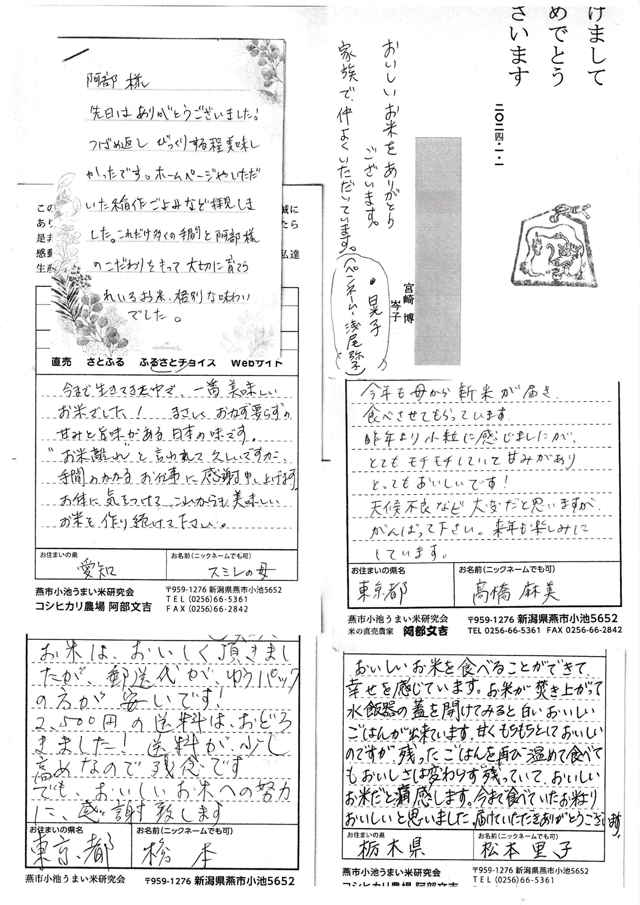 阿部 様
先日は ありがとうございました!
つばめ返し びっくりする程美味し
かったです。ホームページやいただ
いた稲作ごよみなど拝見しま
した。これだけ多くの手間と阿部様
のこだわりをもって大切に育てら
れているお米、格別な味わい
でした。
直売 さとふる ふるさとチョイス Webサイト
今まで生きてきた中で、一番美味しい
お米でした! まさしく、おかず要らずの
甘みと旨味がある日本の味です。
"お米離れ"と言われて久しいですが、
手間のかかるお仕事に感謝申し上げます。
お体に気をつけて、これからも美味しい
お米を作り続けて下さい。
お住まいの県
お名前(ニックネームでも可)
愛知
スミレの母
燕市小池うまい米研究会
コシヒカリ農場 阿部文吉
〒959-1276 新潟県燕市小池5652
TEL (0256)66-5361
FAX (0256)66-2842
お米は、おいしく頂きまし
たが、郵送代が、ゆうパック
の方が安いです!
2,500円の送料は、おどろ
きました! 送料が、少し
高めなので残念です
でも、おいしいお米への努力
に、感謝致します
お住まいの県名
お名前(ニックネームでも可)
東京都
松本
燕市小池うまい米研究会
〒959-1276 新潟県燕市小池5652
けまして
めでとう
ざいます
二〇二四・一・一
おいしいお米をありがとう
ございます。
家族で、仲よくいただいています。
宮崎 博
岑子
・日晃子
(ペンネーム・浅尾弥子)
今年も母から新米が届き、
食べさせてもらっています
昨年より小粒に感じましたが、
とてもモチモチしていて甘みがあり
とってもおいしいです!
天候不良など大変だと思いますが、
がんばって下さい。来年も楽しみに
しています。
お住まいの県名
お名前(ニックネームでも可)
東京都
髙橋 麻美
燕市小池うまい米研究会
米の直売農家 阿部文吉
〒959-1276 新潟県燕市小池5652
TEL 0256-66-5361 FAX 0256-66-2842
おいしいお米を食べることができて
幸せを感じています。お米が焚き上がって
水飯器の蓋を開けてみると白いおいしい
ごはんが出来ています。甘くもちもちとしておいしい
のですが、残ったごはんを再び温めて食べて
もおいしさは変わりず残っていて、おいしい
お米だと痛感します。今まで食べていたお米より
おいしいと思いました。届けていただきありがとうござい
ます。
お住まいの県名
お名前(ニックネームでも可)
栃木県
松本里子
燕市小池うまい米研究会
〒959-1276 新潟県燕市小池5652
TEL (0256)66-5361